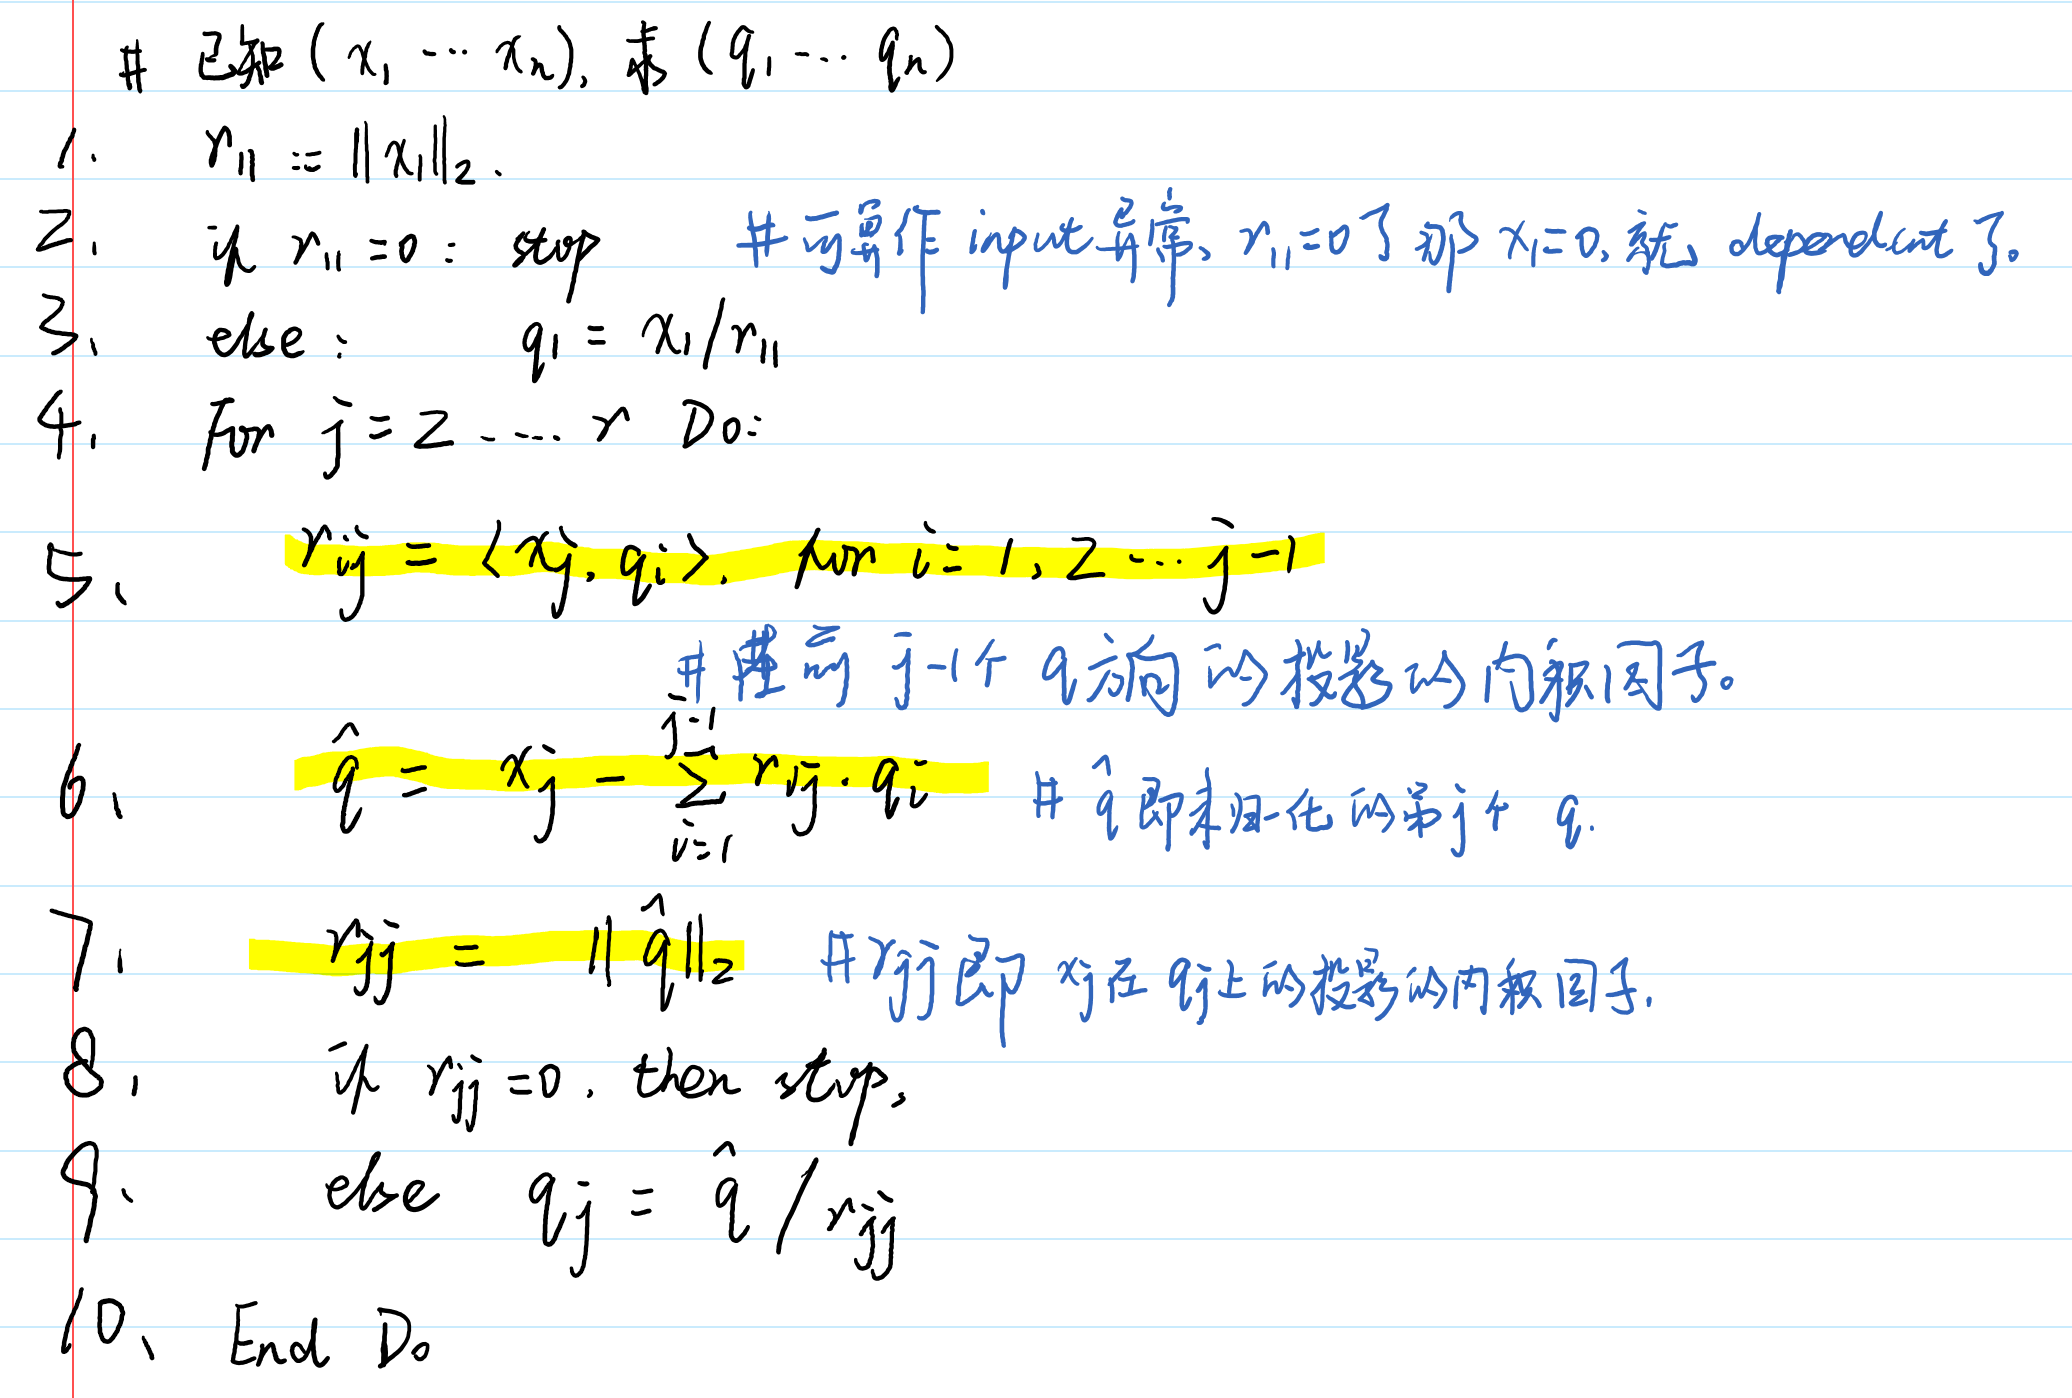 # 已知 (x₁ ⋯ xₙ), 求 (q₁ ⋯ qₙ)
1. r₁₁ := ‖x₁‖₂.
2. if r₁₁ = 0 : stop # 可算作 input 异常、r₁₁=0了那 x₁=0, 就 dependent 了。
3. else : q₁ = x₁/r₁₁
4. For j = 2 ⋯ r Do:
5. rᵢⱼ = ⟨xⱼ, qᵢ⟩, for i = 1, 2 ⋯ j-1
# 前 j-1个 q方向的投影的内积因子。
6. q̂ = xⱼ - ∑ᵢ₌₁ʲ⁻¹ rᵢⱼ · qᵢ # q̂ 即未归一化的第j个 q.
7. rⱼⱼ = ‖q̂‖₂ # rⱼⱼ即 xⱼ在 qⱼ上的投影的内积因子.
8. if rⱼⱼ = 0, then stop,
9. else qⱼ = q̂ / rⱼⱼ
10. End Do